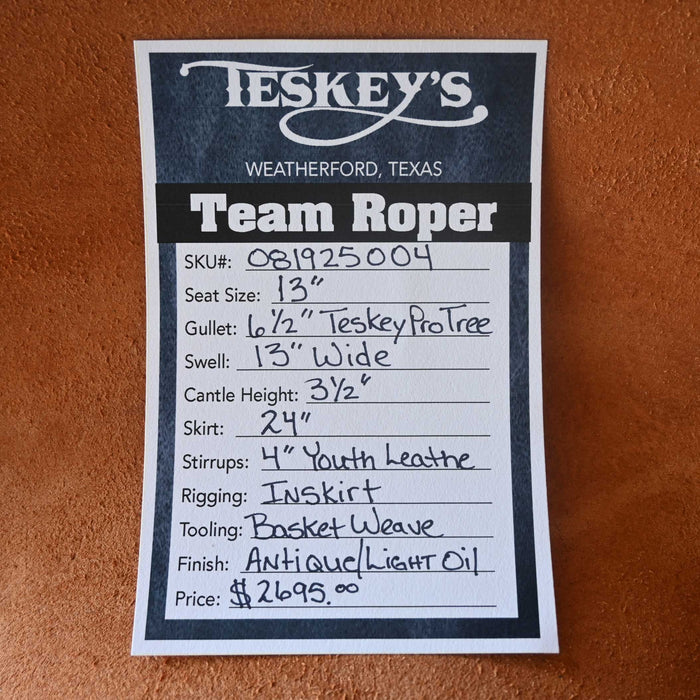 TESKEY'S
WEATHERFORD, TEXAS
Team Roper
SKU#: 081925004
Seat Size: 13"
Gullet: 6 1/2" Teskey Pro Tree
Swell: 13" Wide
Cantle Height: 3 1/2"
Skirt: 24"
Stirrups: 4" Youth Leathe
Rigging: Inskirt
Tooling: Basket Weave
Finish: Antique/Light Oil
Price: $2695.00